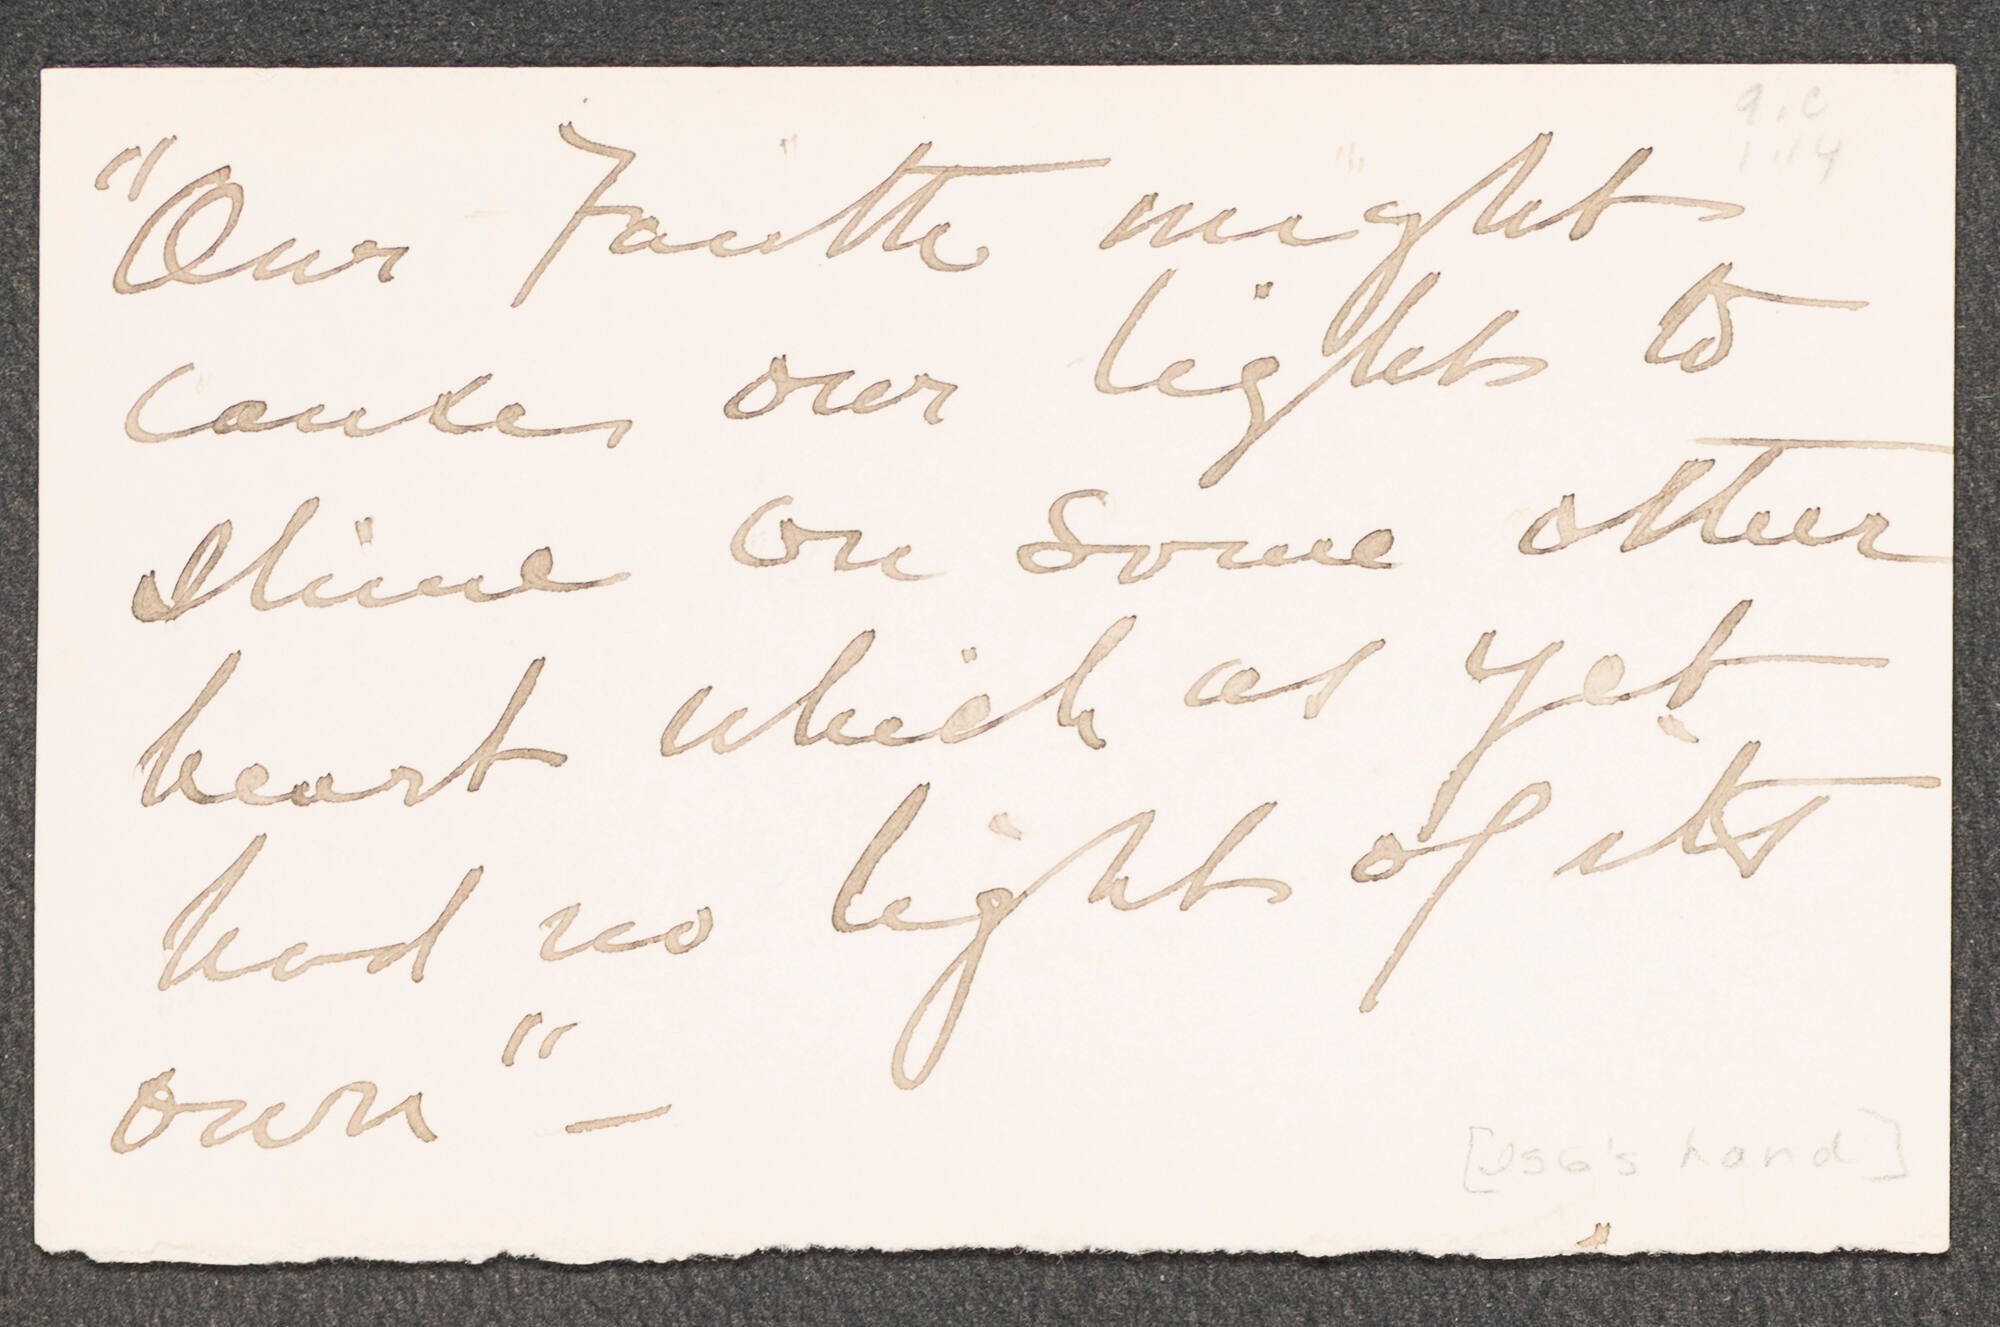 9.c
1.14
"Our Faith might
cause our light to
shine on some other
heart which as yet
had no light of its
own" —
[ISG's hand]